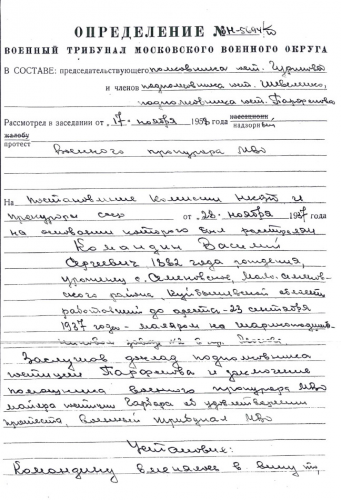 ОПРЕДЕЛЕНИЕ № Н-5694/
ВОЕННЫЙ ТРИБУНАЛ МОСКОВСКОГО ВОЕННОГО ОКРУГА
В СОСТАВЕ: председательствующего полковника юст.
и членов подполковника юст. Шевченко,
подполковника юст. Парфенова
Рассмотрел в заседании от 17 ноября 195 года кассационн надзорн
жалобу
протест
Военного прокурора МВО
На постановление Комиссии НКВД и
прокурора СССР от 28 ноября 1937 года
на основании которого был расстрелян
Командин Василий
Сергеевич 1882 года рождения
уроженец с. Семеновское, Мало-
района, Куйбышевской области
работавший до ареста - 23 сентября
1937 года - маляром на
заводе № 2 в
Заслушав доклад подполковника
юстиции Парфенова и заключение
помощника Военного прокурора МВО
майора юстиции об удовлетворении
протеста, Военный трибунал МВО
Установил:
Командину вменялось в вину то,